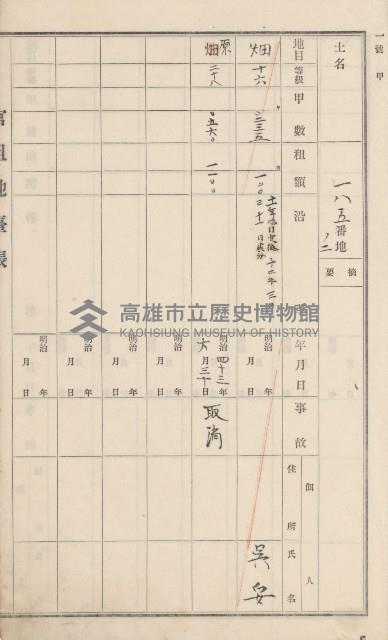 一號甲
土名
一八五番地ノ二
摘要
地目 等級 甲數 租額 沿革 年月日 事故 個人 住所 氏名
畑 十六 〇三三五 一〇〇
明治 年 月 日
吳安
原畑 二十八 〇五六〇 一一〇
明治四十三年六月三十日 取消
明治 年 月 日
明治 年 月 日
明治 年 月 日
明治 年 月 日
官租地臺帳
高雄市立歷史博物館
KAOHSIUNG MUSEUM OF HISTORY